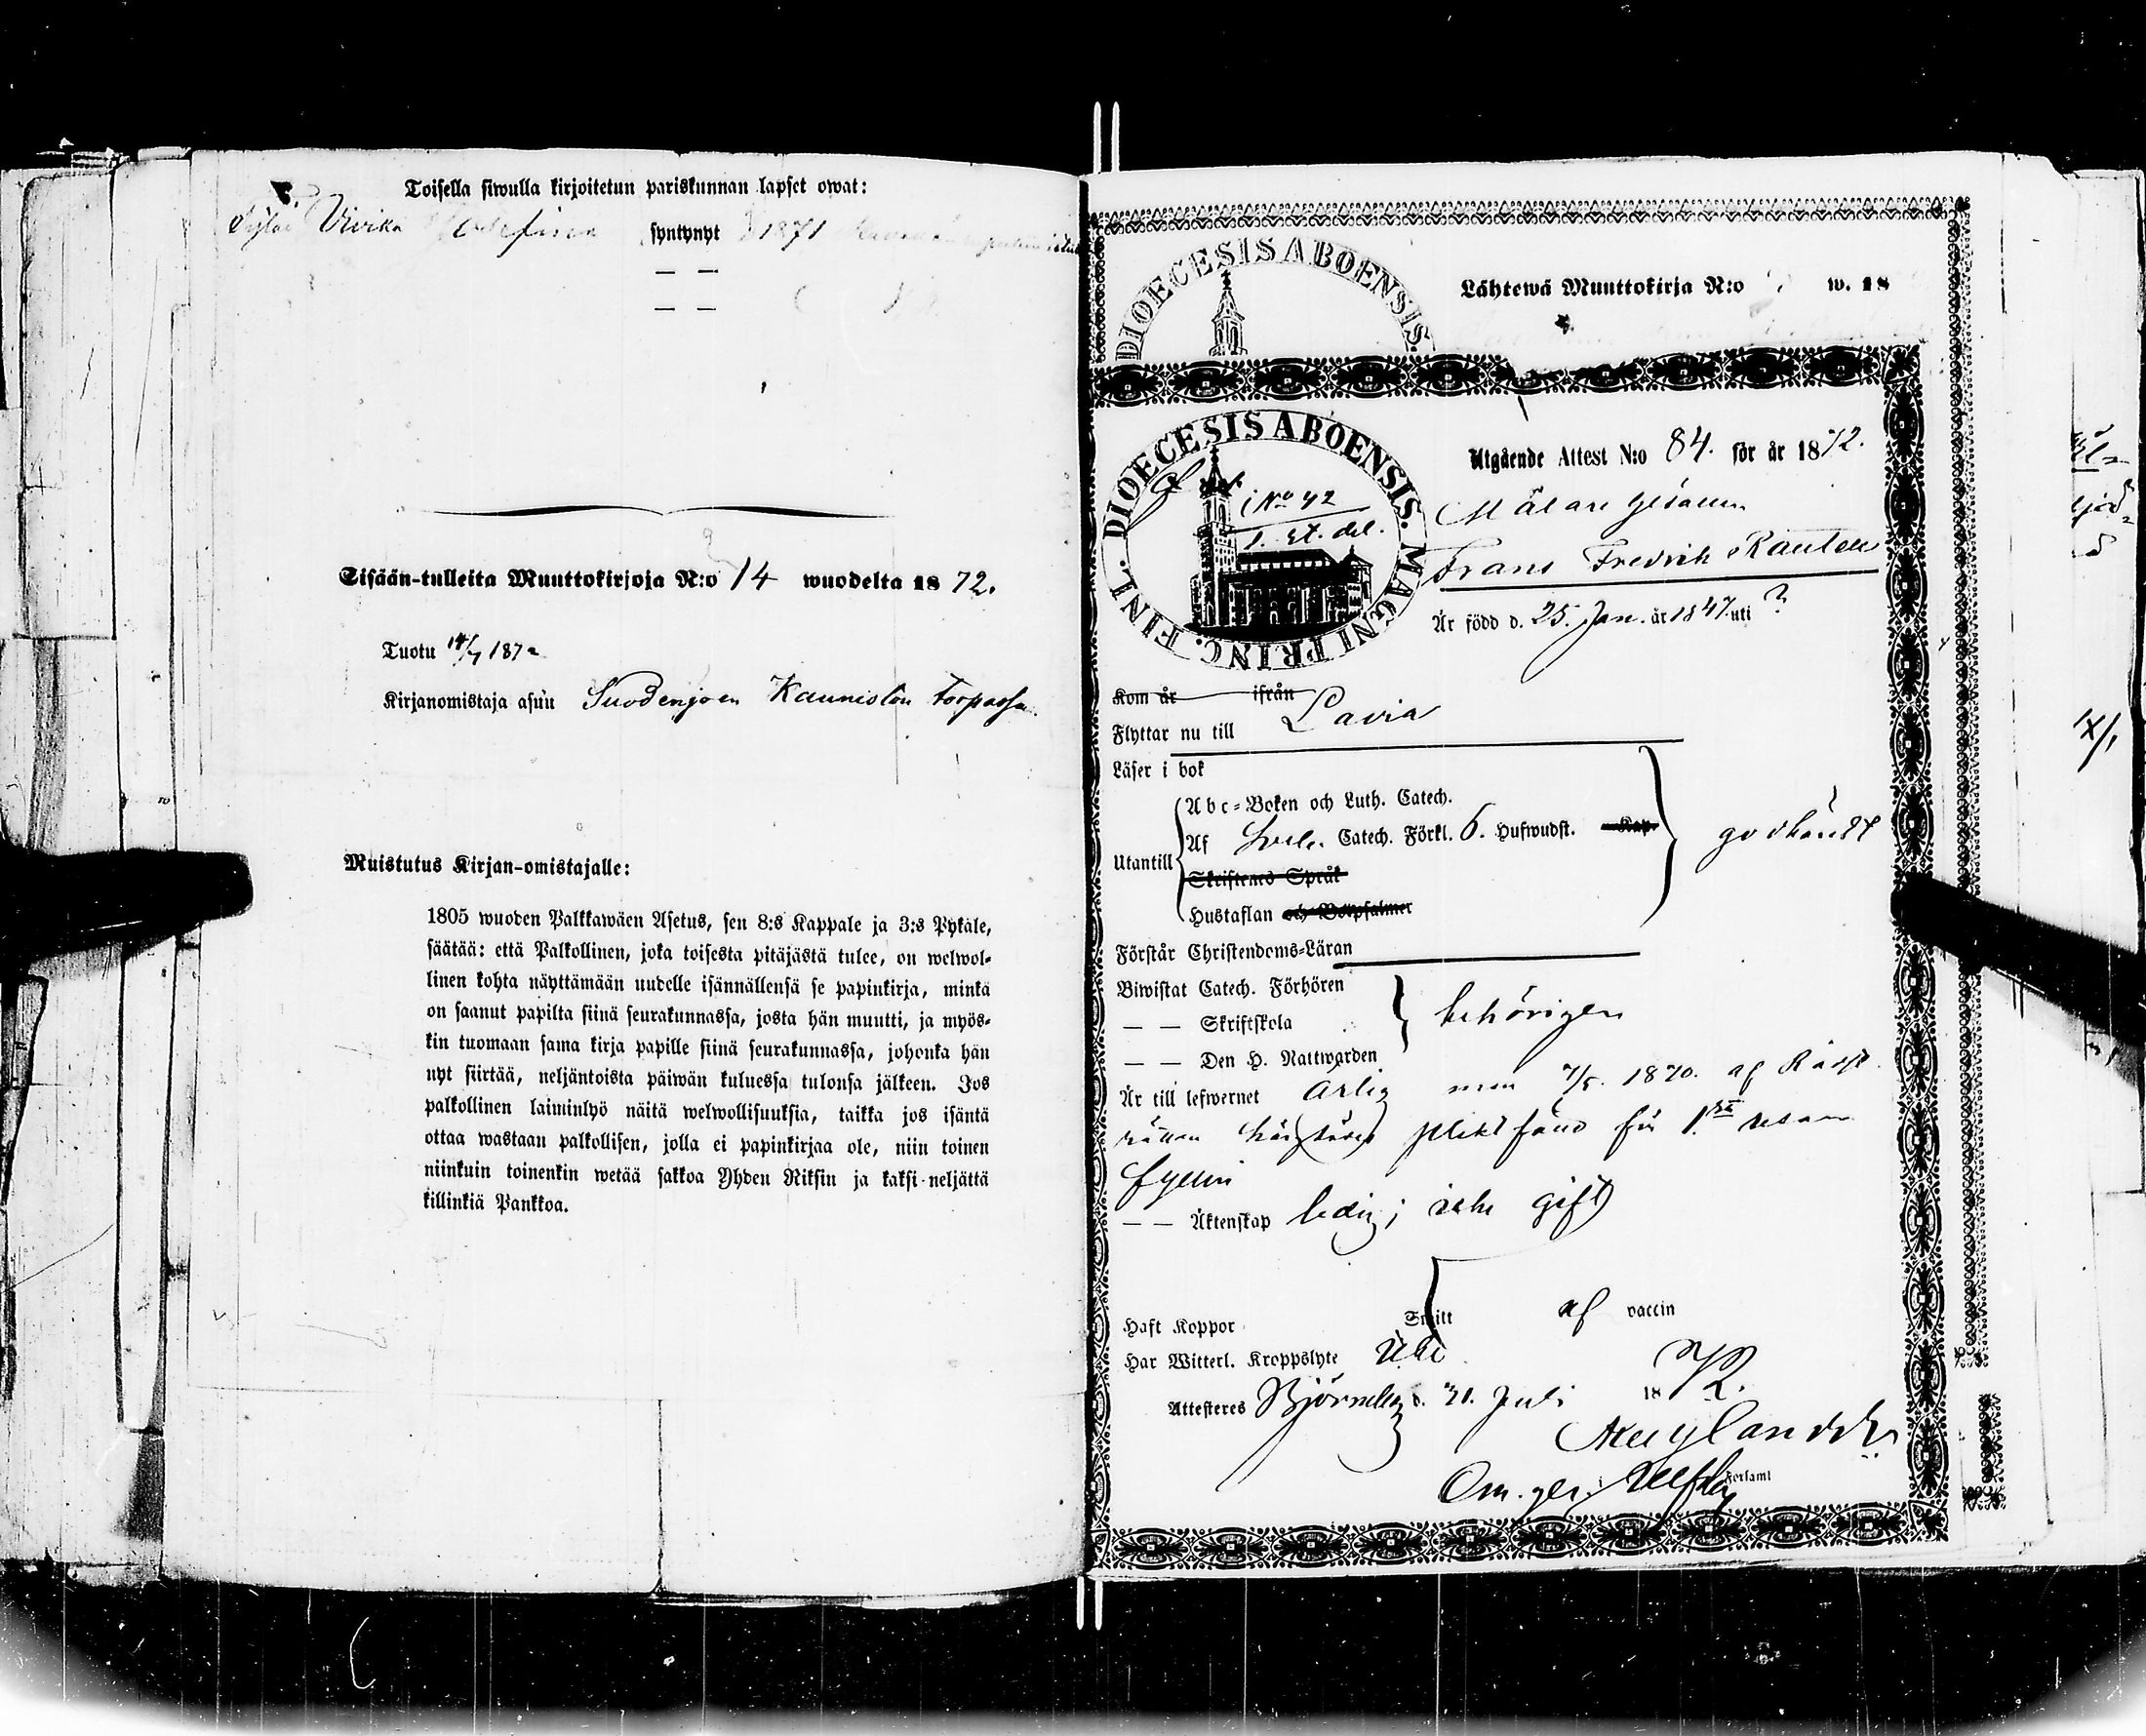 Toisella siwulla kirjoitetun pariskunnan lapset owat:
Vivika syntynyt 1871
— —
— —
Sisään-tulleita Muuttokirjoja N:o 14 wuodelta 1872.
Tuotu 187
Kirjanomistaja asuu Suodenjoen Kauniston torpassa.
Muistutus Kirjan-omistajalle:
1805 wuoden Palkkawäen Asetus, sen 8:s Kappale ja 3:s Pykäle,
säätää: että Palkollinen, joka toisesta pitäjästä tulee, on welwol-
linen kohta näyttämään uudelle isännällensä se papinkirja, minkä
on saanut papilta siinä seurakunnassa, josta hän muutti, ja myös-
kin tuomaan sama kirja papille siinä seurakunnassa, johonka hän
nyt siirtää, neljäntoista päiwän kuluessa tulonsa jälkeen. Jos
palkollinen laiminlyö näitä welwollisuuksia, taikka jos isäntä
ottaa wastaan palkollisen, jolla ei papinkirjaa ole, niin toinen
niinkuin toinenkin wetää sakkoa Yhden Riksin ja kaksi neljättä
killinkiä Pankkoa.
DIOECESIS ABOENSIS.
Lähtewä Muuttokirja N:o w. 18
DIOECESIS ABOENSIS. MAGNI PRINC. FINL.
i No 42
1. st. del.
Utgående Attest N:o 84. för år 1872.
Målare gesällen
Frans Fredrik Rautell
Är född d. 25. Jan. år 1847 uti ?
Kom år ifrån
Flyttar nu till Lavia
Läser i bok
Utantill
Abc-Boken och Luth. Catech.
Af Sveb. Catech. Förkl. 6. Hufwudst. Kap.
Skriftenes Språk
Hustaflan och Botpsalmer
godkändt
Förstår Christendoms-Läran
Biwistat Catech. Förhören
— — Skriftskola
— — Den H. Nattwarden
behörigen
Är till lefwernet ärlig men 1870. af Rådst.
rätten pliktfäld för 1. resan
fylleri
— — Äktenskap ledig; icke gift
Haft Koppor Smitt af vaccin
Har Witterl. Kroppslyte
Attesteres Björneborg d. 31. Juli 1872.
Forsaml